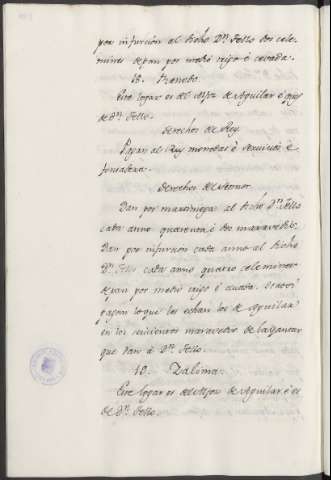 por infurcion al dicho Dn. Tello dos cele-
mines de pan por medio trigo è cevada.
18.
Este logar es del Alfoz de Aguilar è que
de Dn. Tello.
Derechos del Rey.
Pagan al Rey monedas è servicios è
fonsadera.
Derechos del Señor.
Dan por martiniega al dicho Dn. Tello
cada anno quarenta è dos maravedis.
Dan por infurcion cada anno al dicho
Dn. Tello cada anno quatro celemines
de pan por medio trigo è cevada.
pagan lo que les echan los de Aguilar
en los maravedis de la
que dan à Dn. Tello.
19.
Este logar es del Alfoz de Aguilar è es
de Dn. Tello.